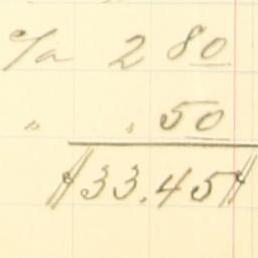 c/a 2 80
" " 50
#33.45#